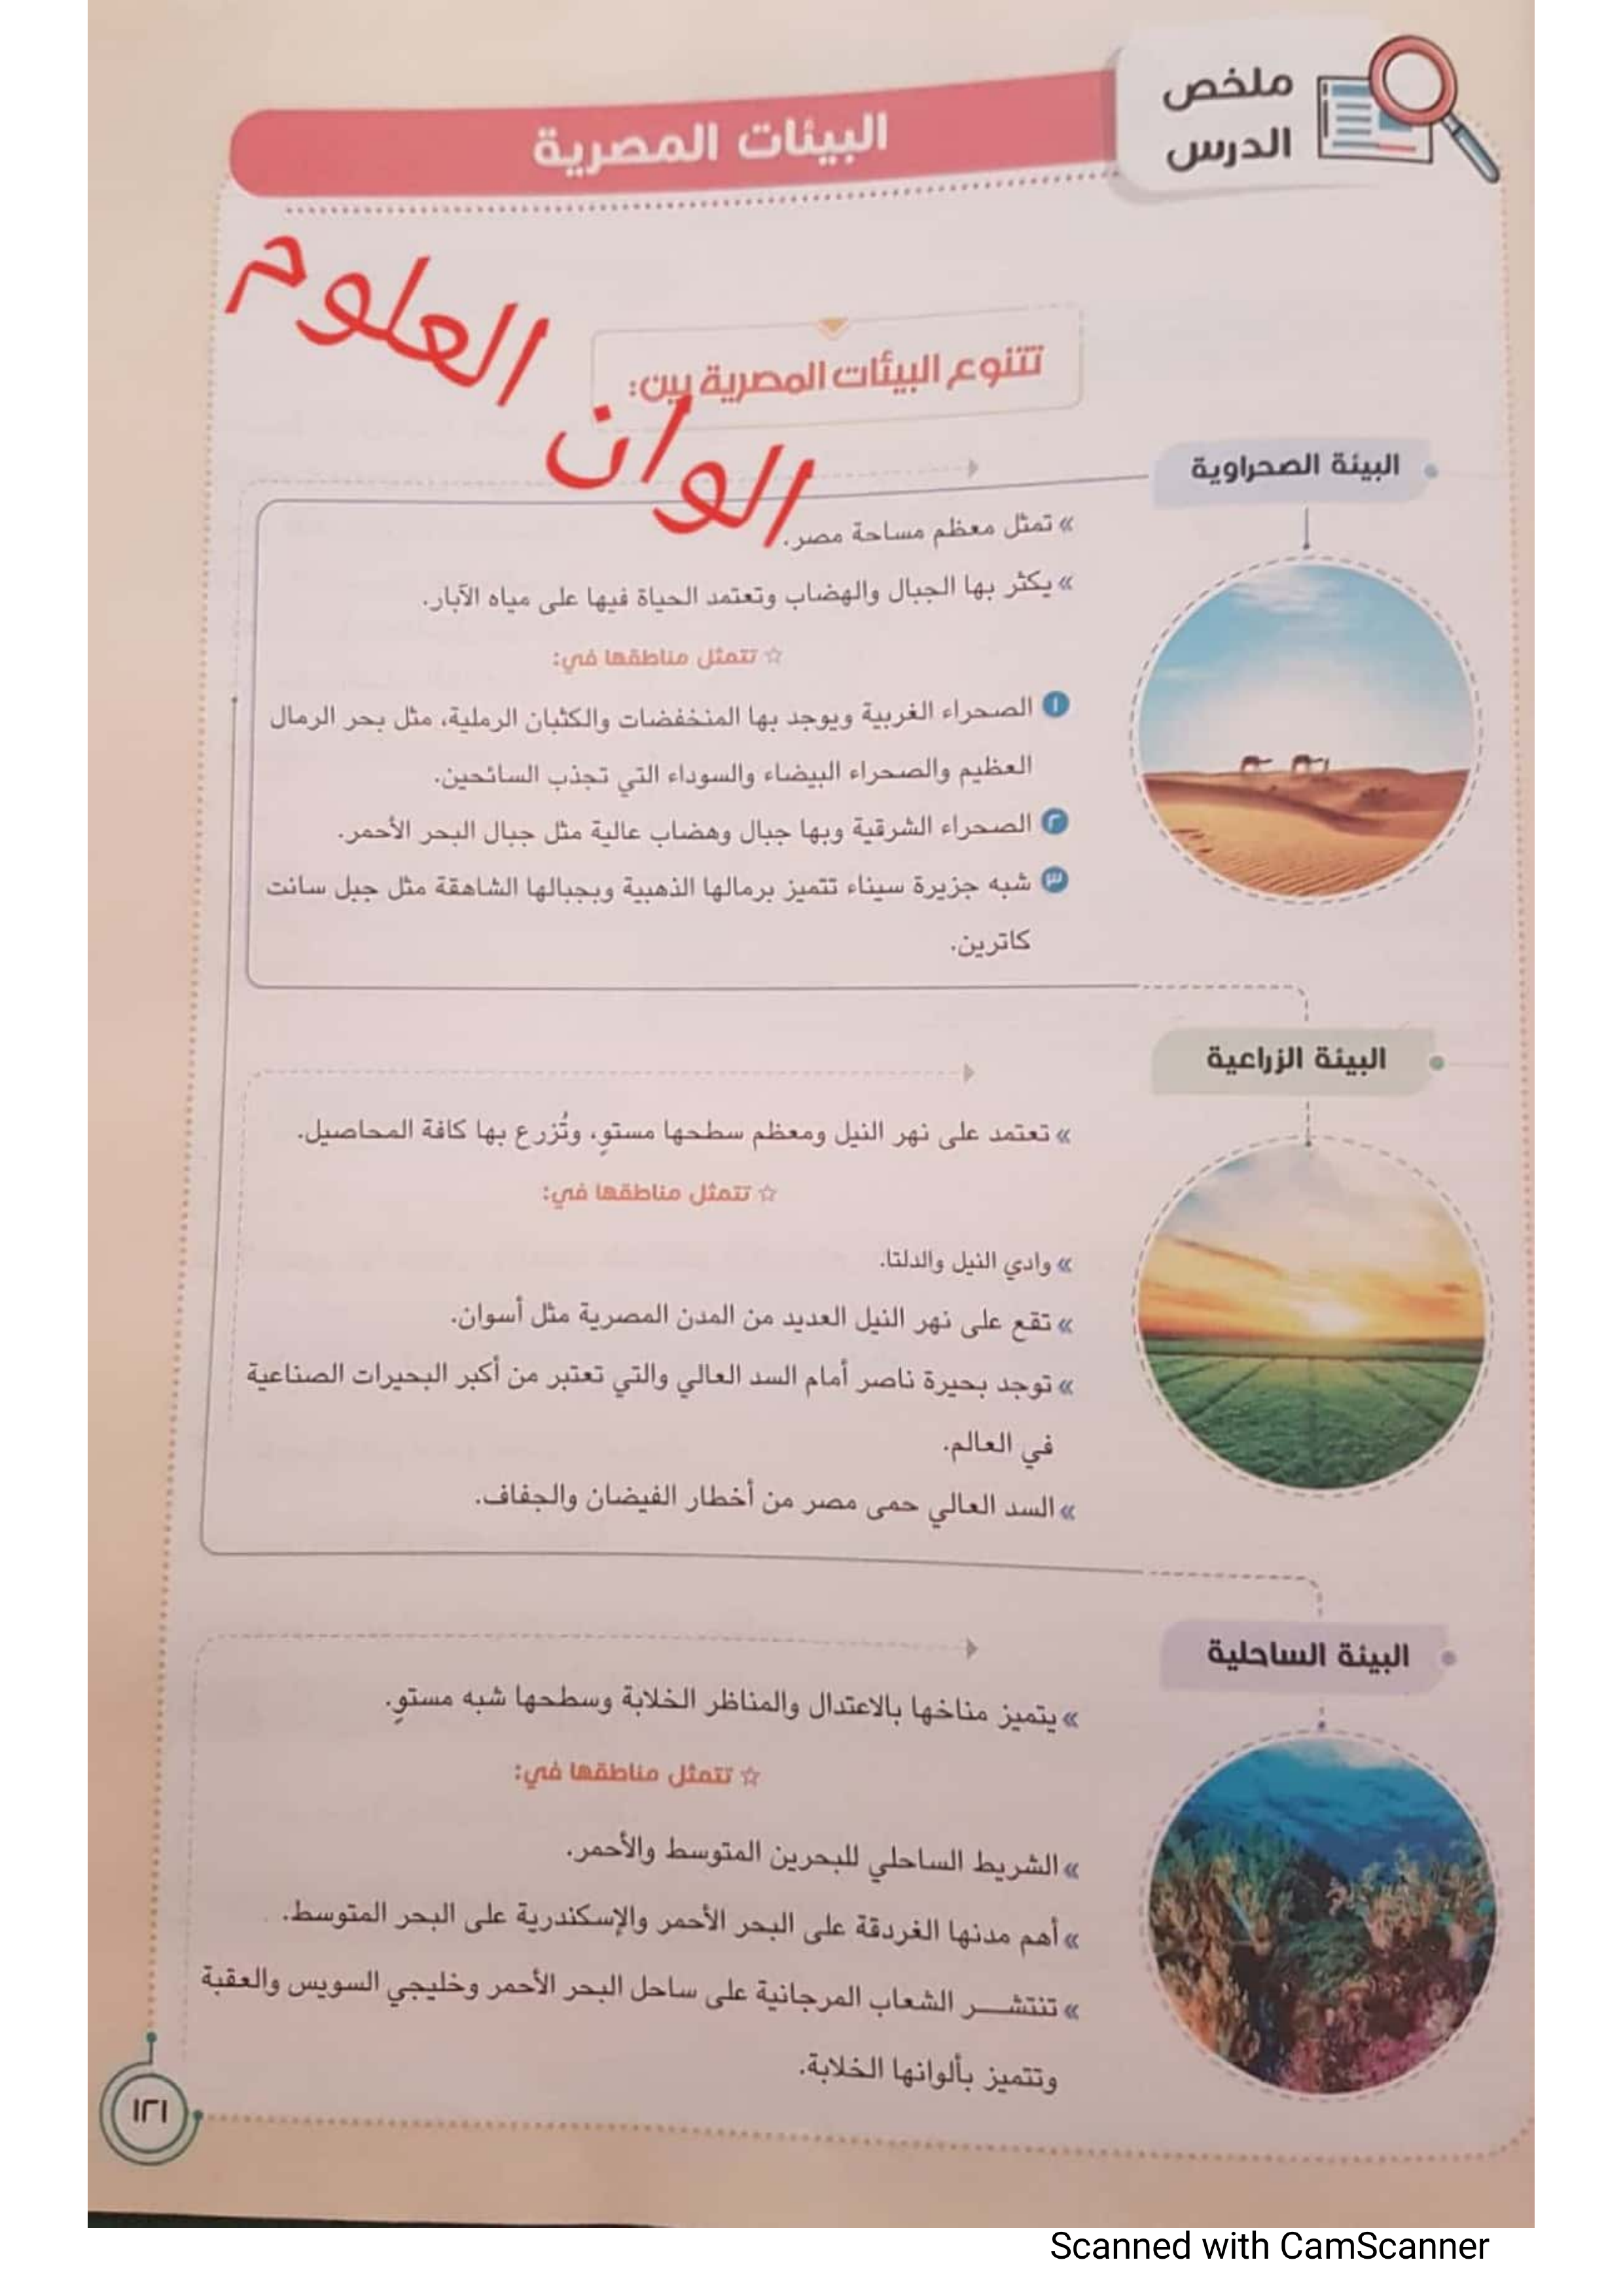 ملخص
الدرس
البيئات المصرية
الوان العلوم
تتنوع البيئات المصرية بين:
البيئة الصحراوية
» تمثل معظم مساحة مصر.
» يكثر بها الجبال والهضاب وتعتمد الحياة فيها على مياه الآبار.
☆ تتمثل مناطقها في:
١ الصحراء الغربية ويوجد بها المنخفضات والكثبان الرملية، مثل بحر الرمال
العظيم والصحراء البيضاء والسوداء التي تجذب السائحين.
٢ الصحراء الشرقية وبها جبال وهضاب عالية مثل جبال البحر الأحمر.
٣ شبه جزيرة سيناء تتميز برمالها الذهبية وبجبالها الشاهقة مثل جبل سانت
كاترين.
البيئة الزراعية
» تعتمد على نهر النيل ومعظم سطحها مستوٍ، وتُزرع بها كافة المحاصيل.
☆ تتمثل مناطقها في:
» وادي النيل والدلتا.
» تقع على نهر النيل العديد من المدن المصرية مثل أسوان.
» توجد بحيرة ناصر أمام السد العالي والتي تعتبر من أكبر البحيرات الصناعية
في العالم.
» السد العالي حمى مصر من أخطار الفيضان والجفاف.
البيئة الساحلية
» يتميز مناخها بالاعتدال والمناظر الخلابة وسطحها شبه مستوٍ.
☆ تتمثل مناطقها في:
» الشريط الساحلي للبحرين المتوسط والأحمر.
» أهم مدنها الغردقة على البحر الأحمر والإسكندرية على البحر المتوسط.
» تنتشـــر الشعاب المرجانية على ساحل البحر الأحمر وخليجي السويس والعقبة
وتتميز بألوانها الخلابة.
١٢١
Scanned with CamScanner